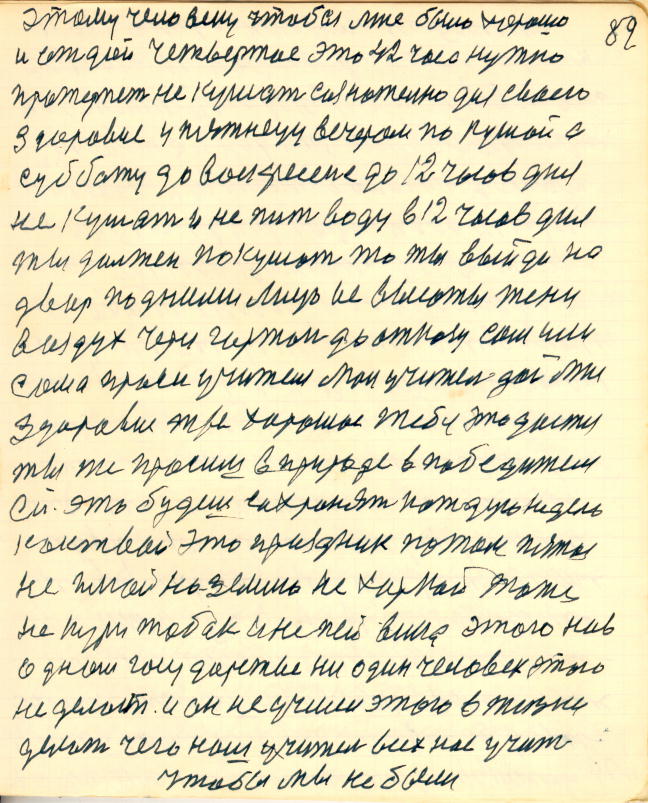 89
этому человеку чтобы мне было хорошо
и сождой четвертое это 42 часа нужно
протерпет не кушат сознателно для своего
здоровие у пятнецу вечером по кушой а
субботу до воскресене до 12 часов дня
не кушат и не пит воду в 12 часов дня
ты должен покушат то ты выйди на
двор подними лицо ве высоты тени
воздух чери гортан до отказу сам или
сама проси учителя мои учител дай мне
здоровие тве хорошое тебе это дасти
ты же просиш в природе в победителя
Си. это будеш сахранят каждую неделю
как твой это праздник потом пятое
не плюй на землю не харкай тоже
не кури табак и не пей вина этого на в
одном государстве ни один человек этого
не делает. и он не учили этого в жизни
делат чего наш учител всех нас учит
чтобы мы не были